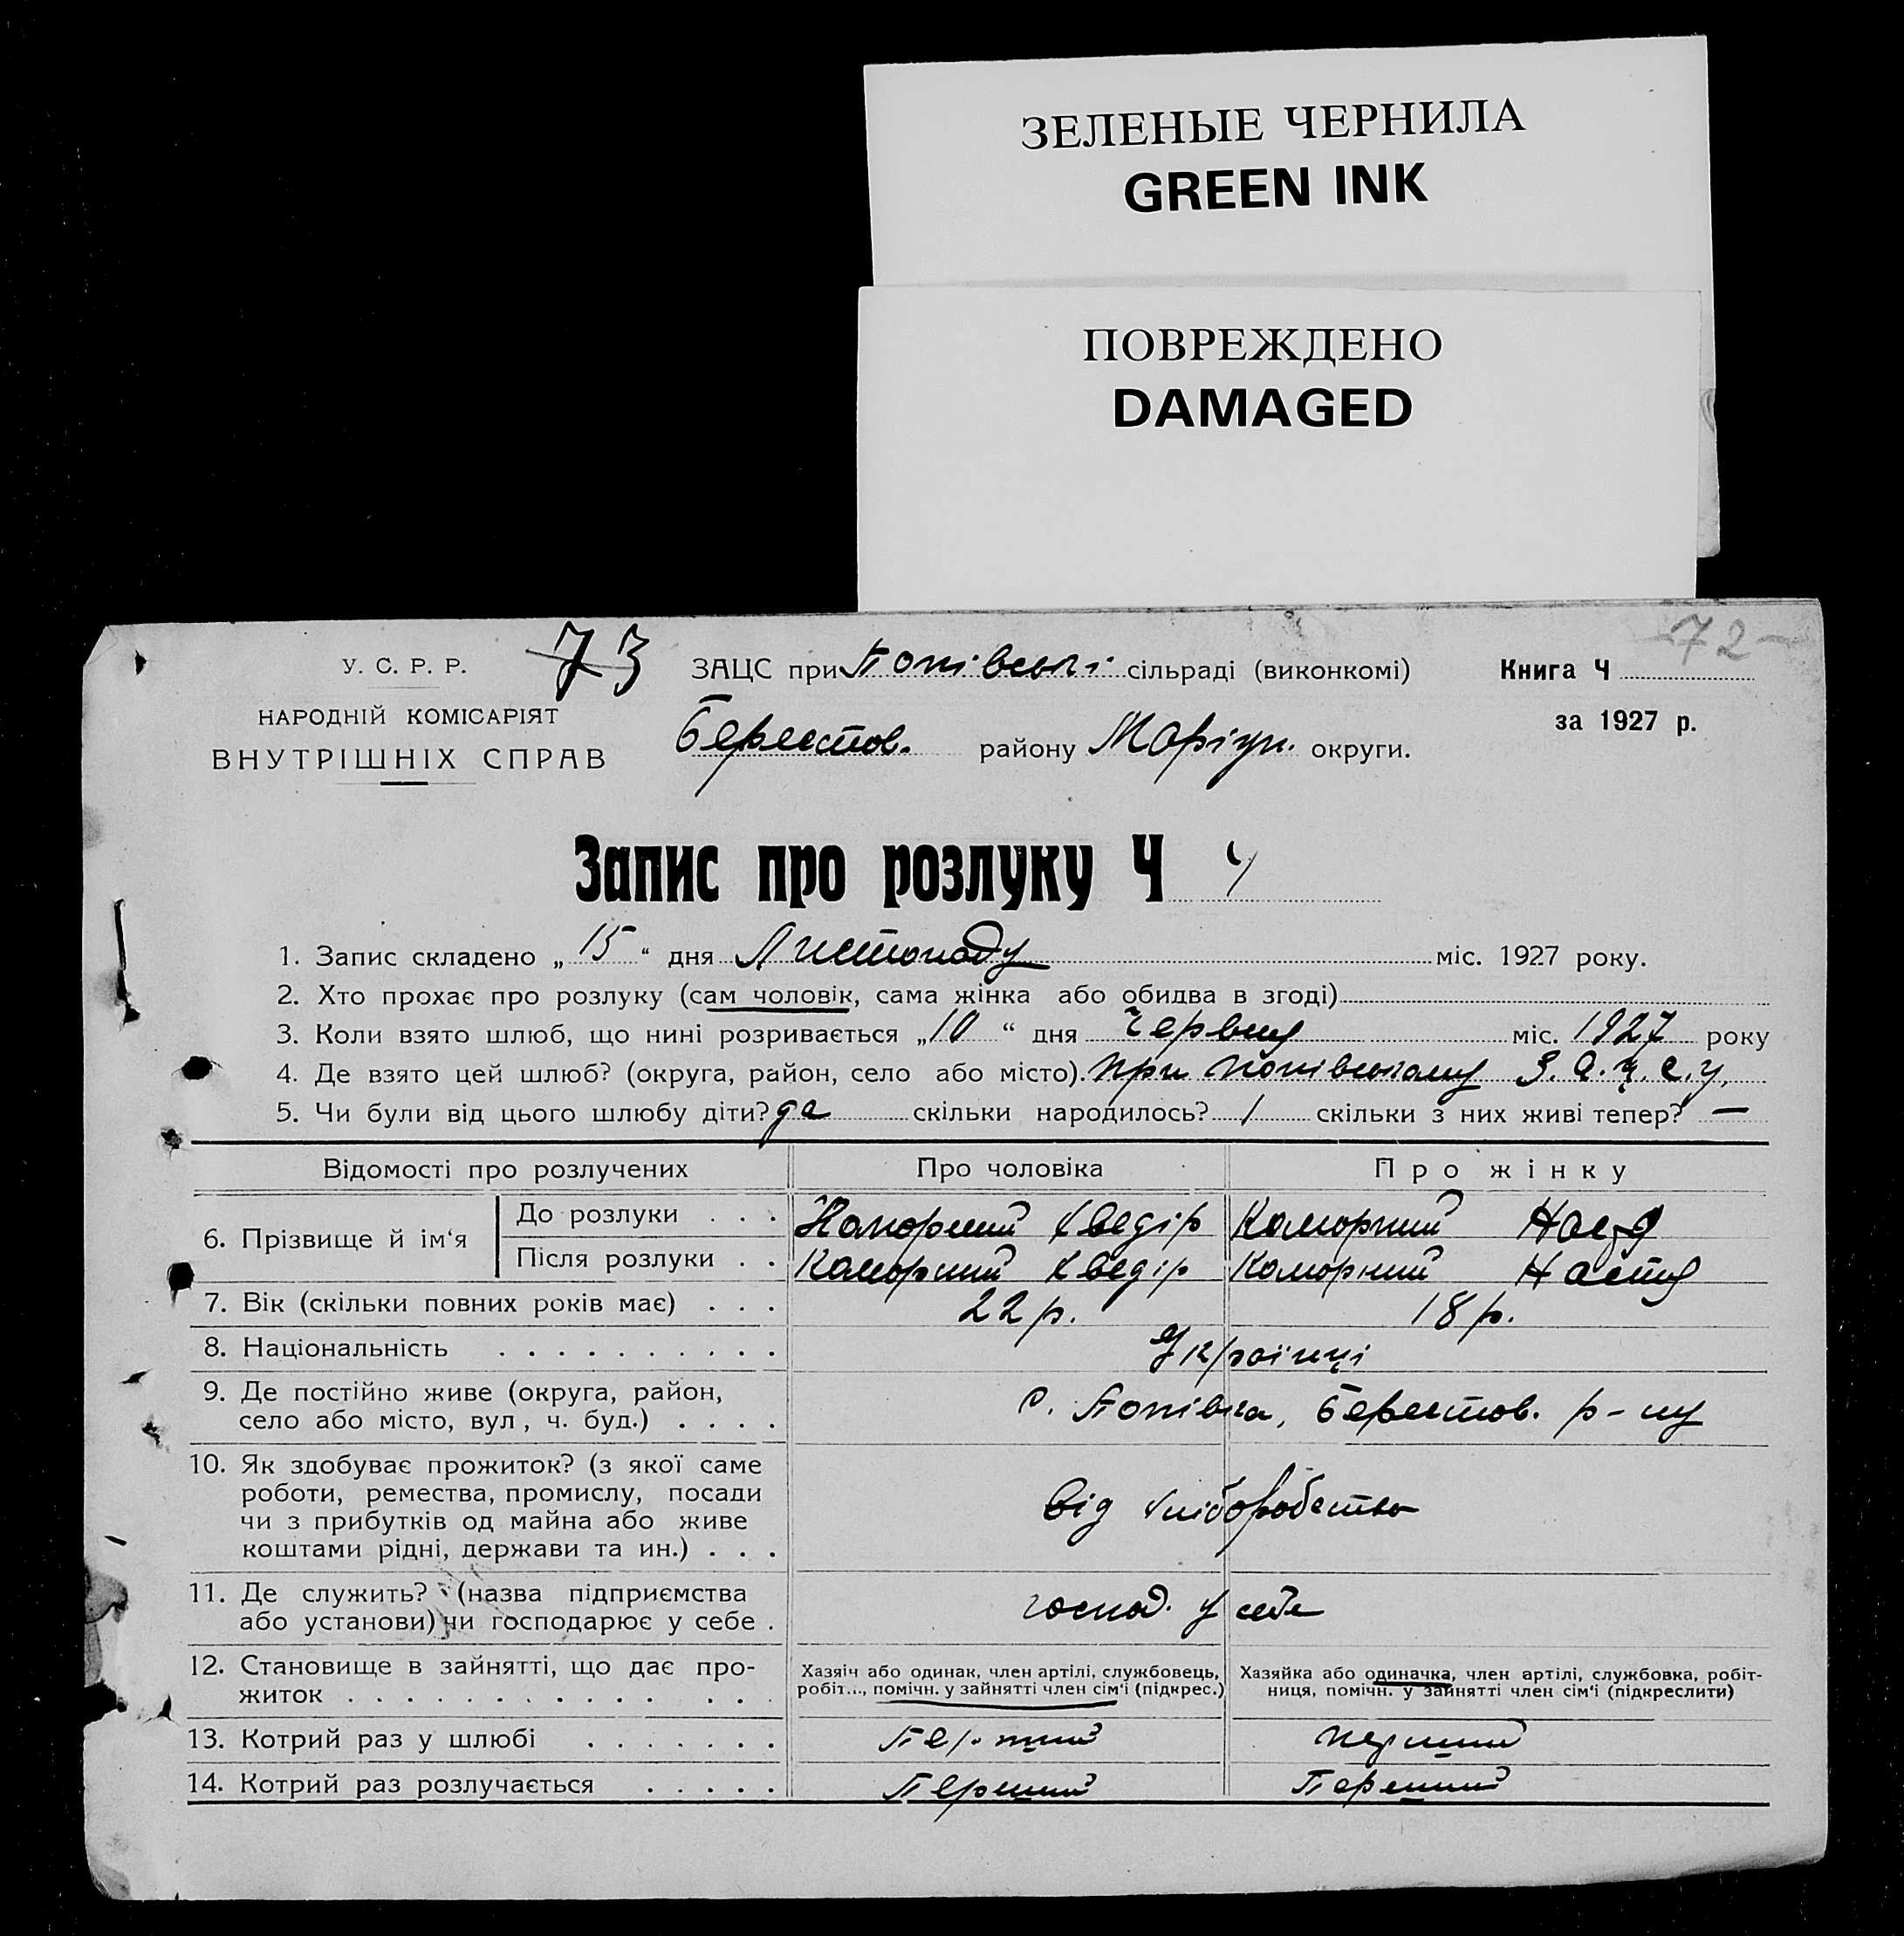 ЗЕЛЕНЫЕ ЧЕРНИЛА
GREEN INK
ПОВРЕЖДЕНО
DAMAGED
72
У. С. Р. Р. 73 ЗАЦС при Попівські сільраді (виконкомі) Книга Ч
НАРОДНІЙ КОМІСАРІЯТ
ВНУТРІШНІХ СПРАВ
Берестов. району Маріуп. округи.
за 1927 р.
Запис про розлуку Ч 4
1. Запис складено „ 15 “ дня Листопаду міс. 1927 року.
2. Хто прохає про розлуку (сам чоловік, сама жінка або обидва в згоді)
3. Коли взято шлюб, що нині розривається „ 10 “ дня Червня міс. 1927 року
4. Де взято цей шлюб? (округа, район, село або місто). при Попівському З.А.Ц.С.у.
5. Чи були від цього шлюбу діти? да скільки народилось? 1 скільки з них живі тепер? —
Відомості про розлучених Про чоловіка Про жінку
6. Прізвище й ім‘я
До розлуки . . . Каморний Хведір Каморний
Після розлуки . . Каморний Хведір Каморний Настя
7. Вік (скільки повних років має) . . . 22 р. 18 р.
8. Національність . . . . . . . . . . Українці
9. Де постійно живе (округа, район,
село або місто, вул., ч. буд.) . . . . с. Попівка, Берестов. р-ну
10. Як здобуває прожиток? (з якої саме
роботи, ремества, промислу, посади
чи з прибутків од майна або живе
коштами рідні, держави та ин.) . . .
Від хліборобства
11. Де служить? (назва підприємства
або установи) чи господарює у себе .
господ. у себе
12. Становище в зайнятті, що дає про-
житок . . . . . . . . . . . . . .
Хазяін або одинак, член артілі, службовець,
робіт..., помічн. у зайнятті член сім‘і (підкрес.)
Хазяйка або одиначка, член артілі, службовка, робіт-
ниця, помічн. у зайнятті член сім‘і (підкреслити)
13. Котрий раз у шлюбі . . . . . . . Перший перший
14. Котрий раз розлучається . . . . . Перший Перший